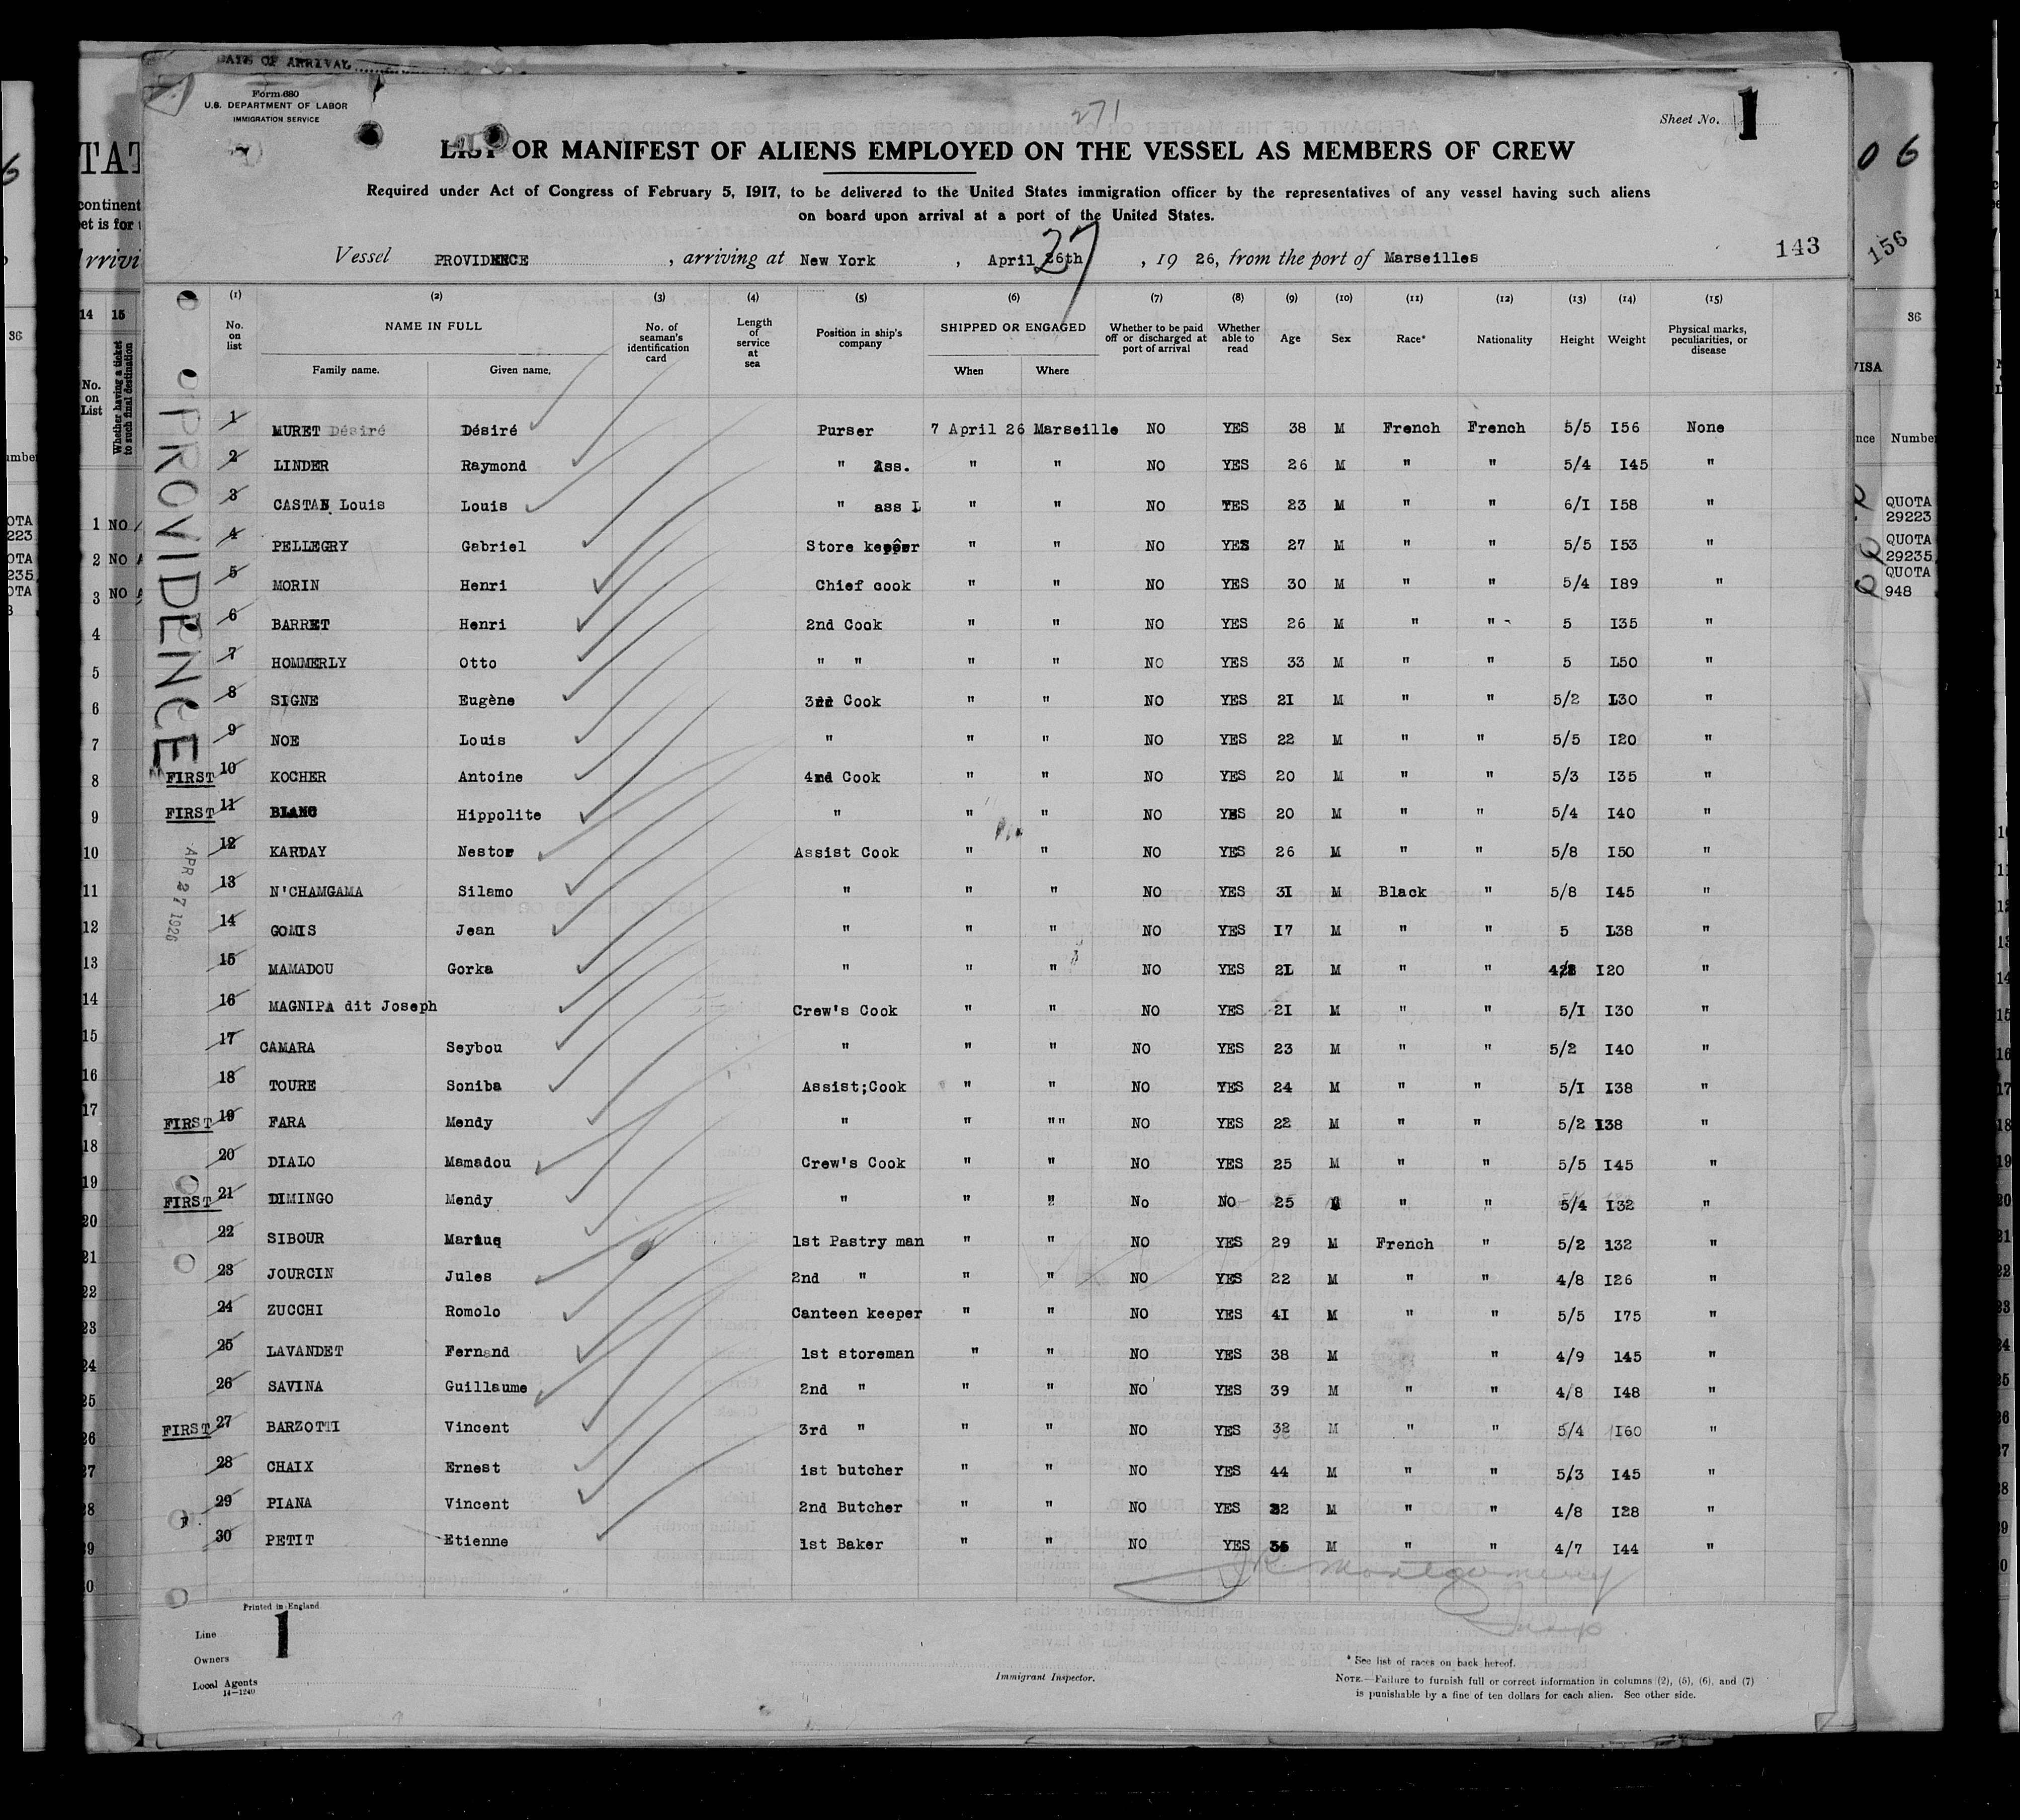 DATE OF ARRIVAL
Form 680
U.S. DEPARTMENT OF LABOR
IMMIGRATION SERVICE
271
Sheet No. 1
LIST OR MANIFEST OF ALIENS EMPLOYED ON THE VESSEL AS MEMBERS OF CREW
Required under Act of Congress of February 5, 1917, to be delivered to the United States immigration officer by the representatives of any vessel having such aliens
on board upon arrival at a port of the United States.
Vessel PROVIDENCE, arriving at New York, April 26th 27, 19 26, from the port of Marseilles 143
(1) (2) (3) (4) (5) (6) (7) (8) (9) (10) (11) (12) (13) (14) (15)
No. on list NAME IN FULL Family name. Given name. No. of seaman's identification card Length of service at sea Position in ship's company SHIPPED OR ENGAGED When Where Whether to be paid off or discharged at port of arrival Whether able to read Age Sex Race* Nationality Height Weight Physical marks, peculiarities, or disease
1 MURET Désiré Désiré Purser 7 April 26 Marseille NO YES 38 M French French 5/5 I56 None
2 LINDER Raymond " Ass. " " NO YES 26 M " " 5/4 I45 "
3 CASTAN Louis Louis " ass L " " NO YES 23 M " " 6/I I58 "
4 PELLEGRY Gabriel Store keeper " " NO YES 27 M " " 5/5 I53 "
5 MORIN Henri Chief cook " " NO YES 30 M " " 5/4 I89 "
6 BARRET Henri 2nd Cook " " NO YES 26 M " " 5 I35 "
7 HOMMERLY Otto " " " " NO YES 33 M " " 5 L50 "
8 SIGNE Eugène 3rd Cook " " NO YES 2I M " " 5/2 L30 "
9 NOE Louis " " " NO YES 22 M " " 5/5 I20 "
FIRST 10 KOCHER Antoine 4nd Cook " " NO YES 20 M " " 5/3 I35 "
FIRST 11 BLANC Hippolite " " " NO YES 20 M " " 5/4 I40 "
12 KARDAY Nestor Assist Cook " " NO YES 26 M " " 5/8 I50 "
13 N'CHAMGAMA Silamo " " " NO YES 3I M Black " 5/8 I45 "
14 GOMIS Jean " " " NO YES I7 M " " 5 L38 "
15 MAMADOU Gorka " " " NO YES 2L M " " I20 "
16 MAGNIPA dit Joseph Crew's Cook " " NO YES 2I M " " 5/I I30 "
17 CAMARA Seybou " " " NO YES 23 M " " 5/2 I40 "
18 TOURE Soniba Assist;Cook " " NO YES 24 M " " 5/I I38 "
FIRST 19 FARA Mendy " " "" NO YES 22 M " " 5/2 I38 "
20 DIALO Mamadou Crew's Cook " " NO YES 25 M " " 5/5 I45 "
FIRST 21 DIMINGO Mendy " " " No No 25 M " " 5/4 I32 "
22 SIBOUR Mariuq 1st Pastry man " " NO YES 29 M French " 5/2 132 "
23 JOURCIN Jules 2nd " " " NO YES 22 M " " 4/8 I26 "
24 ZUCCHI Romolo Canteen keeper " " NO YES 4I M " " 5/5 I75 "
25 LAVANDET Fernand 1st storeman " " NO YES 38 M " 4/9 145 "
26 SAVINA Guillaume 2nd " " " NO YES 39 M " " 4/8 I48 "
FIRST 27 BARZOTTI Vincent 3rd " " " NO YES 38 M " " 5/4 I60 "
28 CHAIX Ernest ist butcher " " NO YES 44 M " " 5/3 I45 "
29 PIANA Vincent 2nd Butcher " " NO YES 22 M " " 4/8 I28 "
F 30 PETIT Etienne 1st Baker " " NO YES M " " 4/7 I44 "
PROVIDENCE
APR 27 1926
J R Montgomery
Insp
Printed in England
1
Line
Owners
Local Agents
14—1240
Immigrant Inspector.
* See list of races on back hereof.
NOTE.—Failure to furnish full or correct information in columns (2), (5), (6), and (7)
is punishable by a fine of ten dollars for each alien. See other side.
TAT
continent
et is for
Arrivi
14 15
No. on List
Whether having a ticket to such final destination
1 NO
2 NO
3 NO
06
156
36
VISA
Number
QUOTA
29223
QUOTA
29235
QUOTA
948